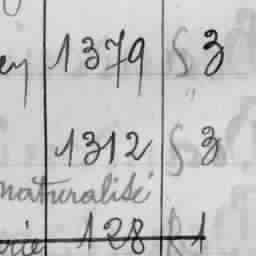 1379 S 3
"
1312 S 3
naturalisé
128 R 1